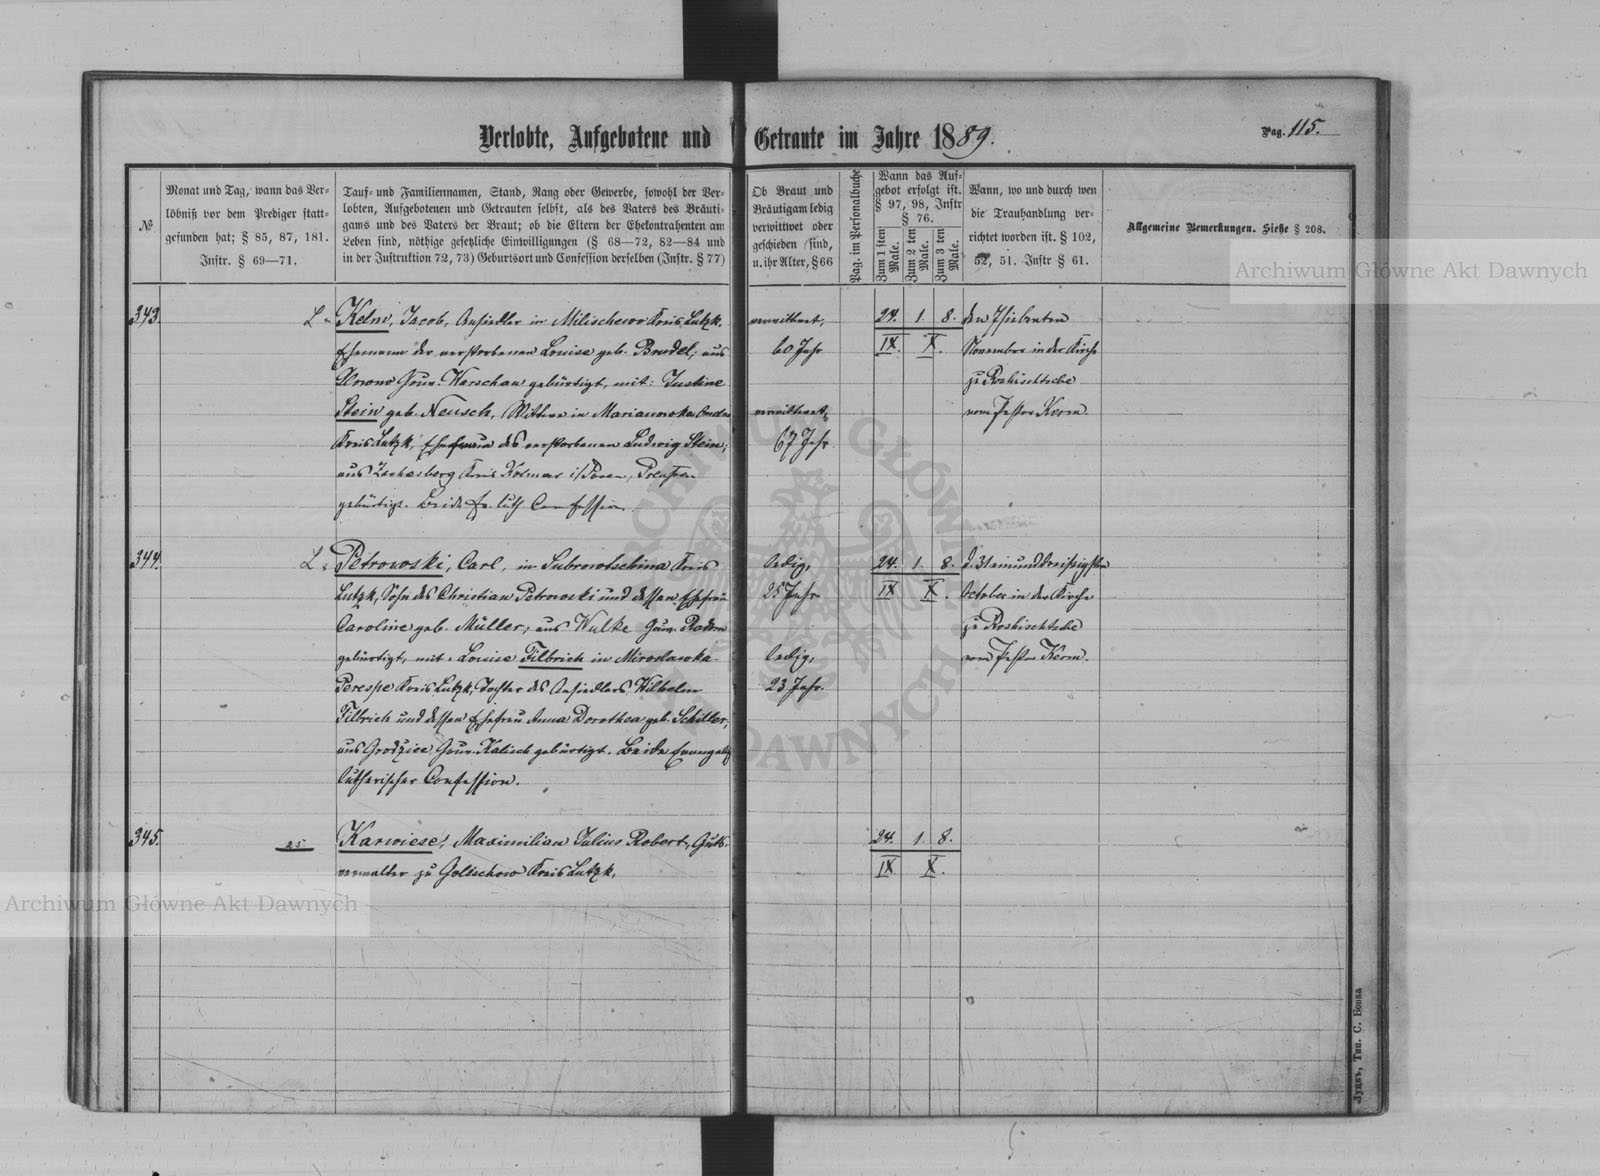 Verlobte, Aufgebotene und Getraute im Jahre 1889. Pag. 115.
№
Monat und Tag, wann das Ver-
löbniß vor dem Prediger statt-
gefunden hat; § 85, 87, 181.
Instr. § 69—71.
Tauf- und Familiennamen, Stand, Rang oder Gewerbe, sowohl der Ver-
lobten, Aufgebotenen und Getrauten selbst, als des Vaters des Bräuti-
gams und des Vaters der Braut; ob die Eltern der Ehekontrahenten am
Leben sind, nöthige gesetzliche Einwilligungen (§ 68—72, 82—84 und
in der Instruktion 72, 73) Geburtsort und Confession derselben (Instr. § 77)
Ob Braut und
Bräutigam ledig
verwittwet oder
geschieden sind,
u. ihr Alter, § 66
Pag. im Personalbuche
Wann das Auf-
gebot erfolgt ist.
§ 97, 98, Instr
§ 76.
Zum 1 sten
Male.
Zum 2 ten
Male.
Zum 3 ten
Male.
Wann, wo und durch wen
die Trauhandlung ver-
richtet worden ist. § 102,
52, 51. Instr § 61.
Allgemeine Bemerkungen. Siehe § 208.
343.
L.
Kelm, Jacob, Ansiedler in Milischewo Kreis Lutzk,
Ehemann der verstorbenen Louise geb. Brudel; aus
Gouv. Warschau gebürtigt, mit: Justine
Stein geb. Neusch, Wittwe in Mariannoka
Kreis Lutzk, Ehefrau des verstorbenen Ludwig Stein;
aus Kreis Kolmar i/Posen, Preußen
gebürtigt. Beide Ev. luth Confession.
verwittwet,
60 Jahr
verwittwet,
67 Jahr
24. 1. 8.
IX. X.
den 7 siebenten
November in der Kirche
zu Roshischtsche
vom Pastor Kerm.
344.
L.
Petrowski, Carl, in Dubrowotschina Kreis
Lutzk, Sohn des Christian Petrowski und dessen Ehefrau
Caroline geb. Müller; aus Wulke Gouv. Radom
gebürtigt, mit: Louise Filbrich in Miroslawka-
Perespe Kreis Lutzk, Tochter des Ansiedlers Wilhelm
Filbrich und dessen Ehefrau Anna Dorothea geb. Schiller;
aus Grodzice Gouv. Kalisch gebürtigt. Beide Evangelisch
lutherischer Confession.
ledig,
25 Jahr
ledig,
23 Jahr.
24. 1. 8.
IX X.
d. 31 einunddreißigsten
October in der Kirche
zu Roshischtsche
vom Pastor Kerm.
345.
25.
Karwiese, Maximilian Julius Robert, Guts-
verwalter zu Golischow Kreis Lutzk,
24. 1. 8.
IX X.
Луцкъ, Тип. С. Бонка
Archiwum Główne Akt Dawnych
Archiwum Główne Akt Dawnych
ARCHIWUM GŁÓWNE AKT DAWNYCH